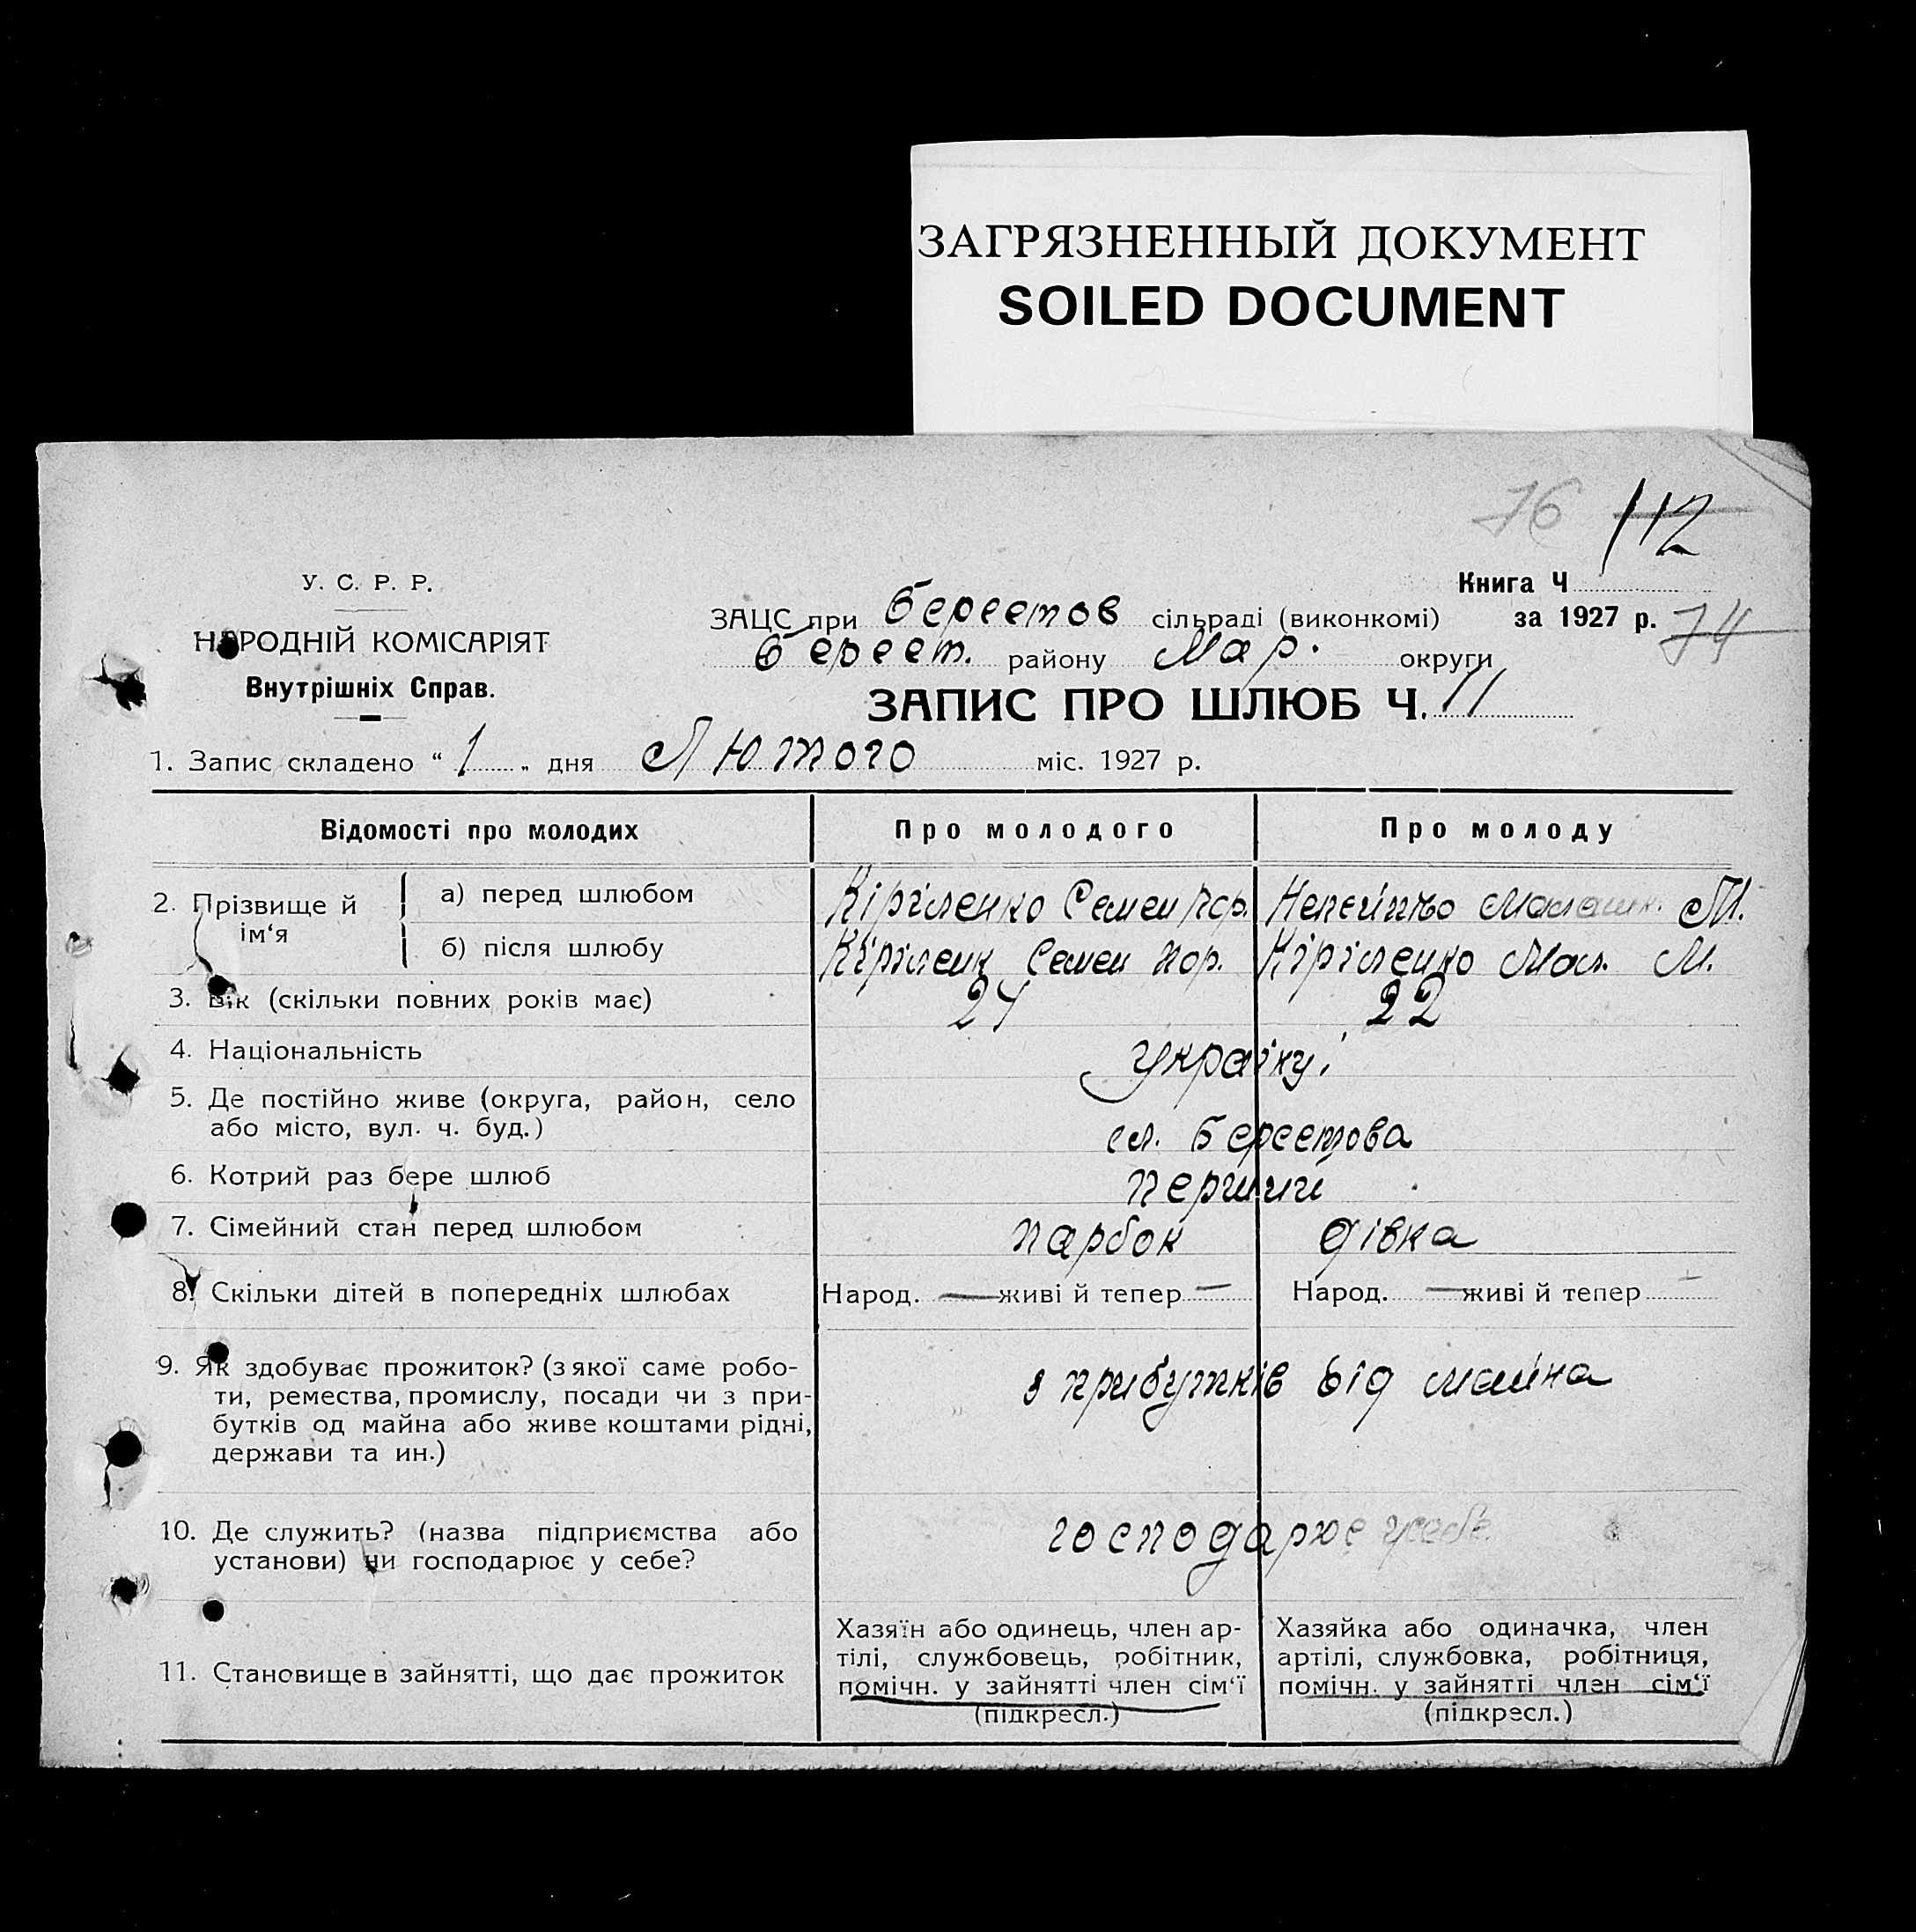 ЗАГРЯЗНЕННЫЙ ДОКУМЕНТ
SOILED DOCUMENT
76 112
У. С. Р. Р.
НАРОДНІЙ КОМІСАРІЯТ
Внутрішніх Справ.
Книга Ч
за 1927 р. 74
ЗАЦС при Берестов сільраді (виконкомі)
Берест. району Мар. округи
ЗАПИС ПРО ШЛЮБ Ч. 11
1. Запис складено “ 1 „ дня Лютого міс. 1927 р.
Відомості про молодих Про молодого Про молоду
2. Прізвище й ім‘я
а) перед шлюбом Кіріленко Семен М.
б) після шлюбу Кіріленк Семен Кіріленко Мал. М.
3. Вік (скільки повних років має) 24 22
4. Національність
5. Де постійно живе (округа, район, село
або місто, вул. ч. буд.) сл. Берестова
6. Котрий раз бере шлюб перший
7. Сімейний стан перед шлюбом парбок дівка
8. Скільки дітей в попередніх шлюбах Народ. — живі й тепер — Народ. — живі й тепер —
9. Як здобуває прожиток? (з якої саме робо-
ти, ремества, промислу, посади чи з при-
бутків од майна або живе коштами рідні,
держави та ин.)
з прибутків від майна
10. Де служить? (назва підприємства або
установи) чи господарює у себе?
господарює у себе
11. Становище в зайнятті, що дає прожиток
Хазяїн або одинець, член ар-
тілі, службовець, робітник,
помічн. у зайнятті член сім‘ї
(підкресл.)
Хазяйка або одиначка, член
артілі, службовка, робітниця,
помічн. у зайнятті член сім‘ї
(підкресл.)